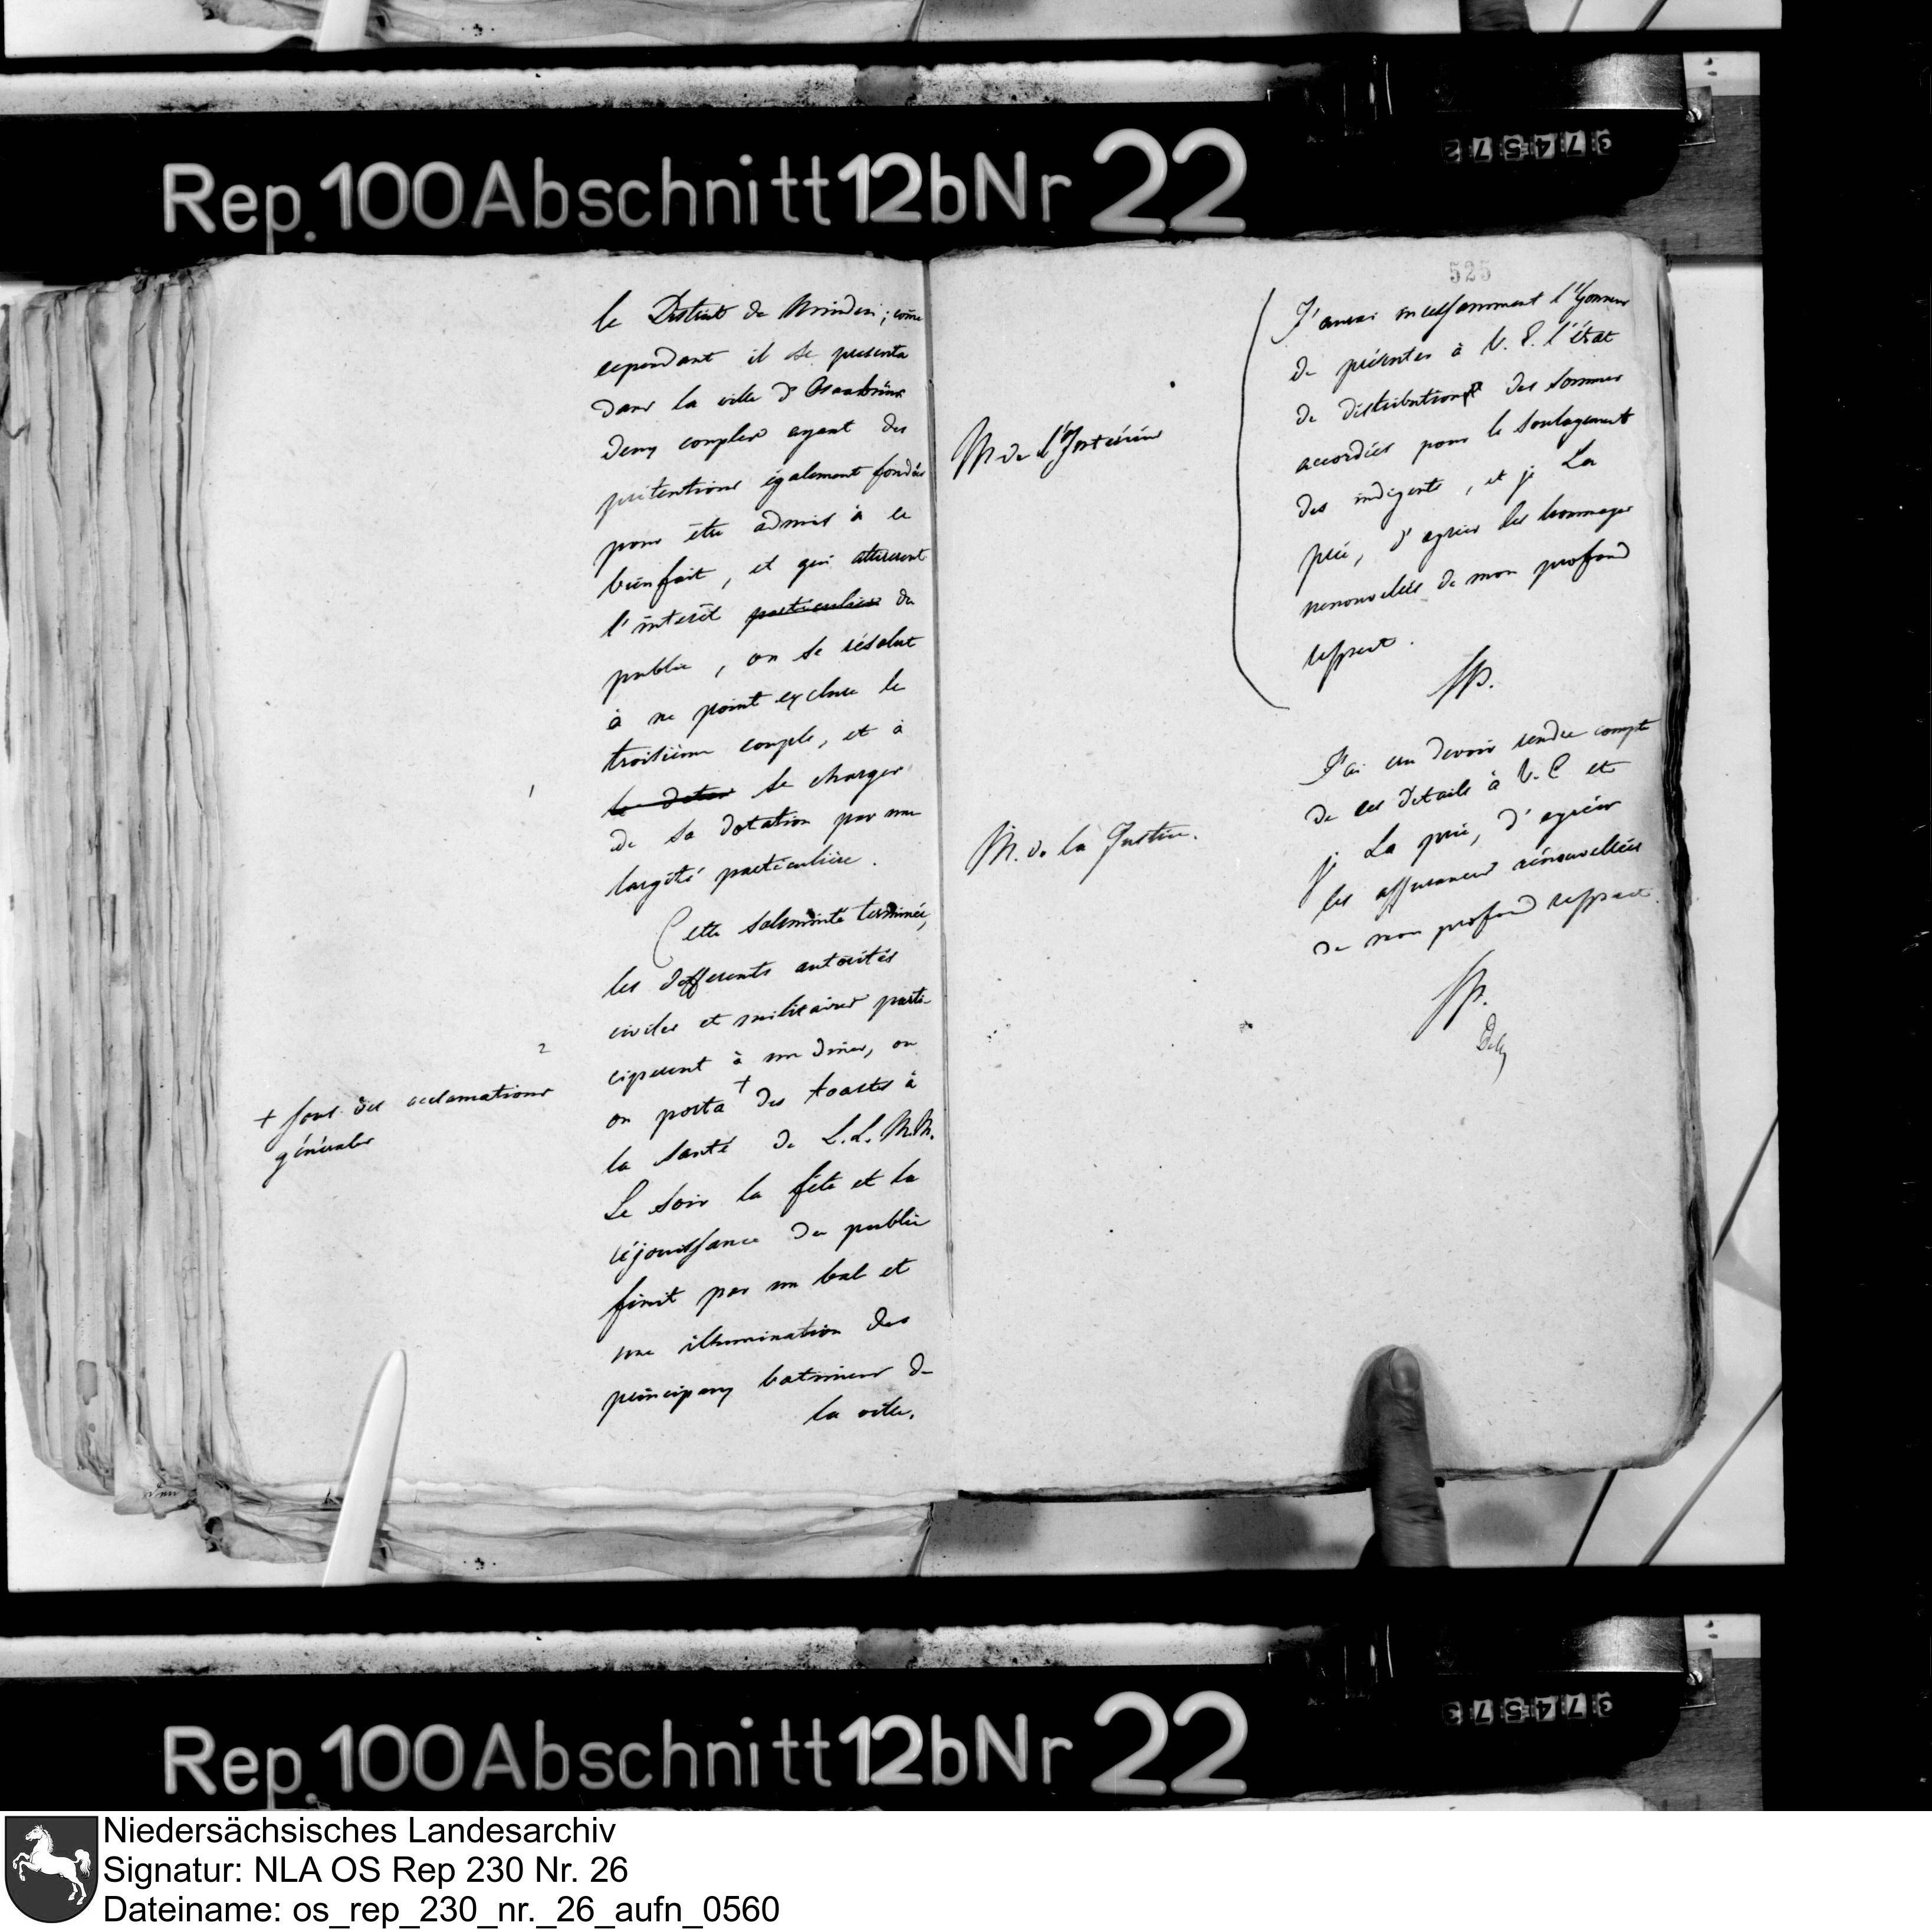 Rep. 100 Abschnitt 12b Nr 22
974572
le District de Minden; côme
cependant il se presenta
dans la ville d'Osnabrück
deux couples ayant des
prétentions également fondées
pour être admis à ce
bienfait, et qui attirerent
l'intérêt particulier du
public, on se résolut
à ne point exclure le
troisième couple, et à
le doter se charger
de sa dotation par une
largité particulière.
Cette solemnité terminée,
les differents autorités
civiles et militaires parti-
ciperent à un diner, ou
on porta + des toastes à
la santé de L.L. M.M.
Le soir la fête et la
réjouissance du public
finit par un bal et
une illumination des
principaux batimens de
la ville.
1
2
+ sous des acclamations
générales
525
M. de l'Intérieur
J'aurai incessamment l'honneur
de présenter à V. E. l'état
de distribution des sommes
accordées pour le soulagement
des indigents, et je La
prie, d'agréer les hommages
renouvelés de mon profond
respect.
M. de la Justice.
J'ai cru devoir rendre compte
de ces details à V. E et
je La prie, d'agréer
les assurances rénouvellées
de mon profond respect.
Rep. 100 Abschnitt 12b Nr 22
974573
Niedersächsisches Landesarchiv
Signatur: NLA OS Rep 230 Nr. 26
Dateiname: os_rep_230_nr._26_aufn_0560